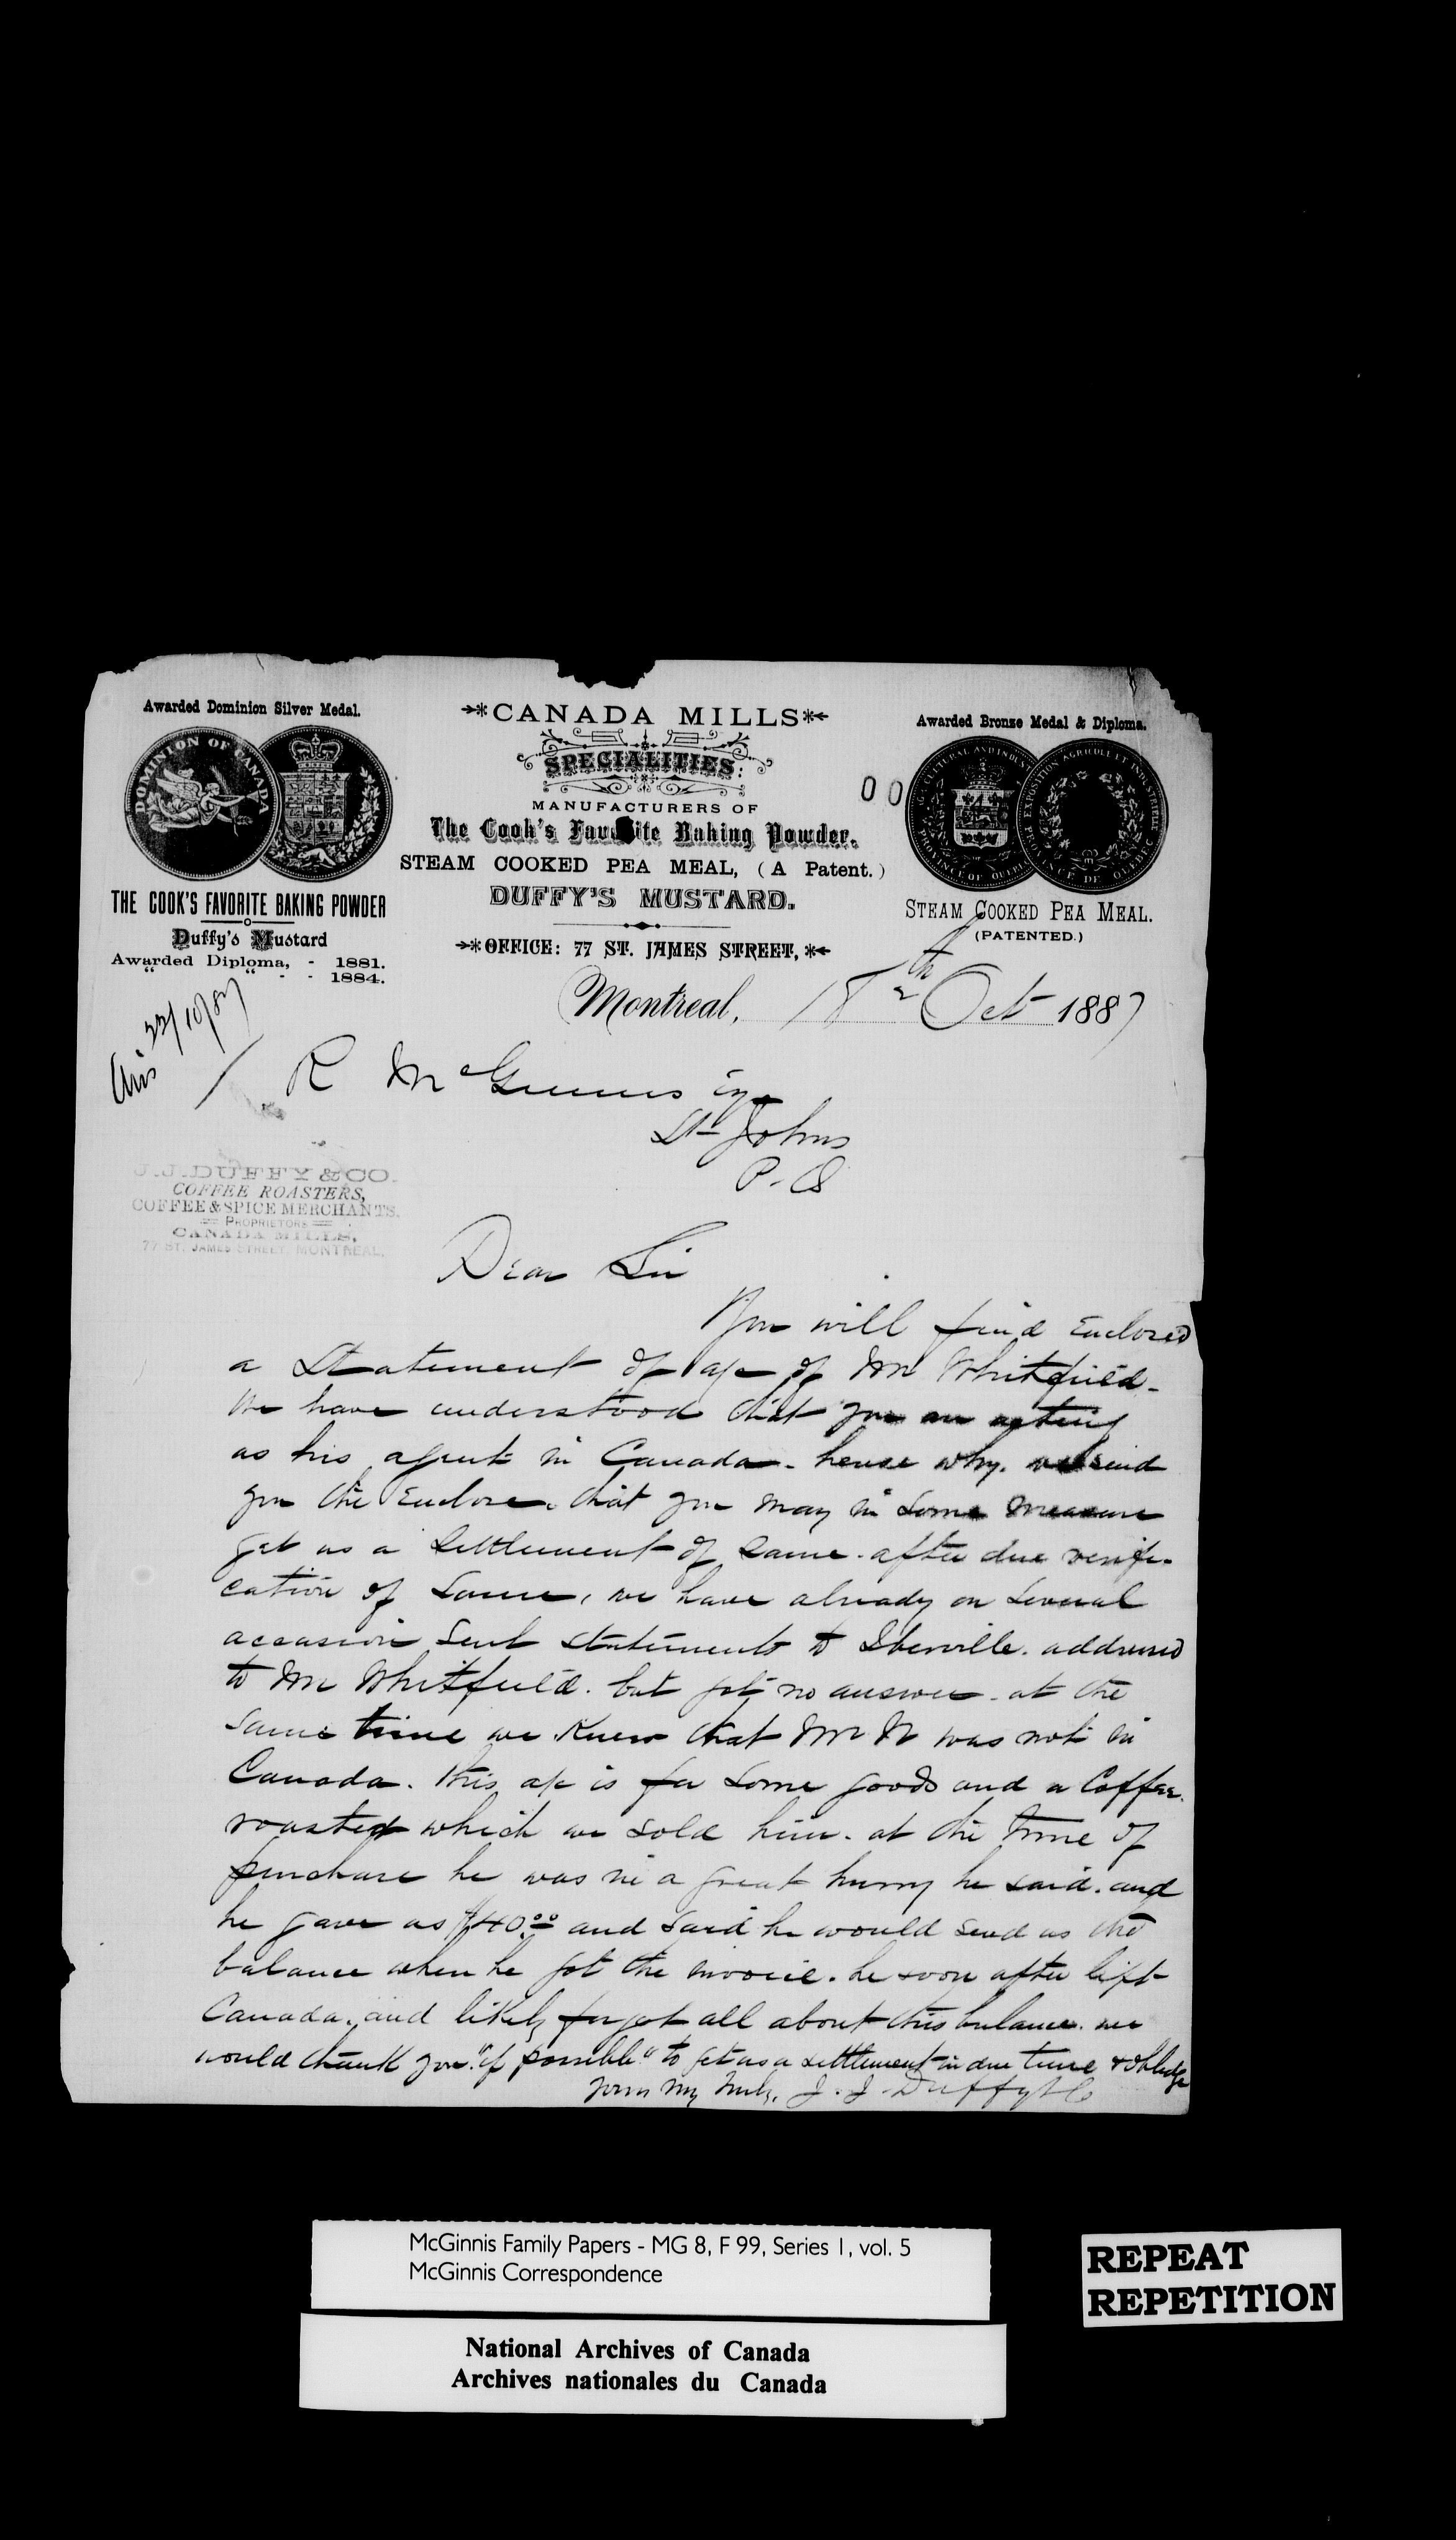 Awarded Dominion Silver Medal.
DOMINION OF CANADA
THE COOK'S FAVORITE BAKING POWDER
Duffy's Mustard
Awarded Diploma, - 1881.
" " - - 1884.
CANADA MILLS
SPECIALITIES:
MANUFACTURERS OF
The Cook's Favorite Baking Powder.
STEAM COOKED PEA MEAL, (A Patent.)
DUFFY'S MUSTARD.
OFFICE: 77 ST. JAMES STREET,
Awarded Bronze Medal & Diploma.
PROVINCE OF QUEBEC
EXPOSITION AGRICOLE ET INDUSTRIELLE
PROVINCE DE QUEBEC
STEAM COOKED PEA MEAL.
(PATENTED.)
Montreal, 18th Oct 1887
Ans 22/10/87
R McGinnis Esq
St Johns
P. Q
J.J. DUFFY & CO.
COFFEE ROASTERS,
COFFEE & SPICE MERCHANTS.
PROPRIETORS
CANADA MILLS,
77 ST. JAMES STREET, MONTREAL.
Dear Sir
You will find Enclosed
a Statement of a/c of Mr Whitfield-
We have understood that you are acting
as his agent in Canada- hense why. we send
you the Enclose. that you may in some measure
get us a settlement of same. after due verifi-
cation of same, we have already on several
accasion sent statements to Iberville. addressed
to Mr Whitfield. but got no answer. at the
same time we knew that Mr W was not in
Canada. this a/c is for some goods and a Coffee
roaster which we sold him. at the time of
purchase he was in a great hurry he said. and
he gave us $40.00 and said he would send us the
balance when he got the invoice. he soon after left
Canada. and likely forgot all about this balance. we
would thank you "if possible" to get us a settlement in due time & oblidge
yours very truly, J. J. Duffy & Co
McGinnis Family Papers - MG 8, F 99, Series 1, vol. 5
McGinnis Correspondence
National Archives of Canada
Archives nationales du Canada
REPEAT
REPETITION